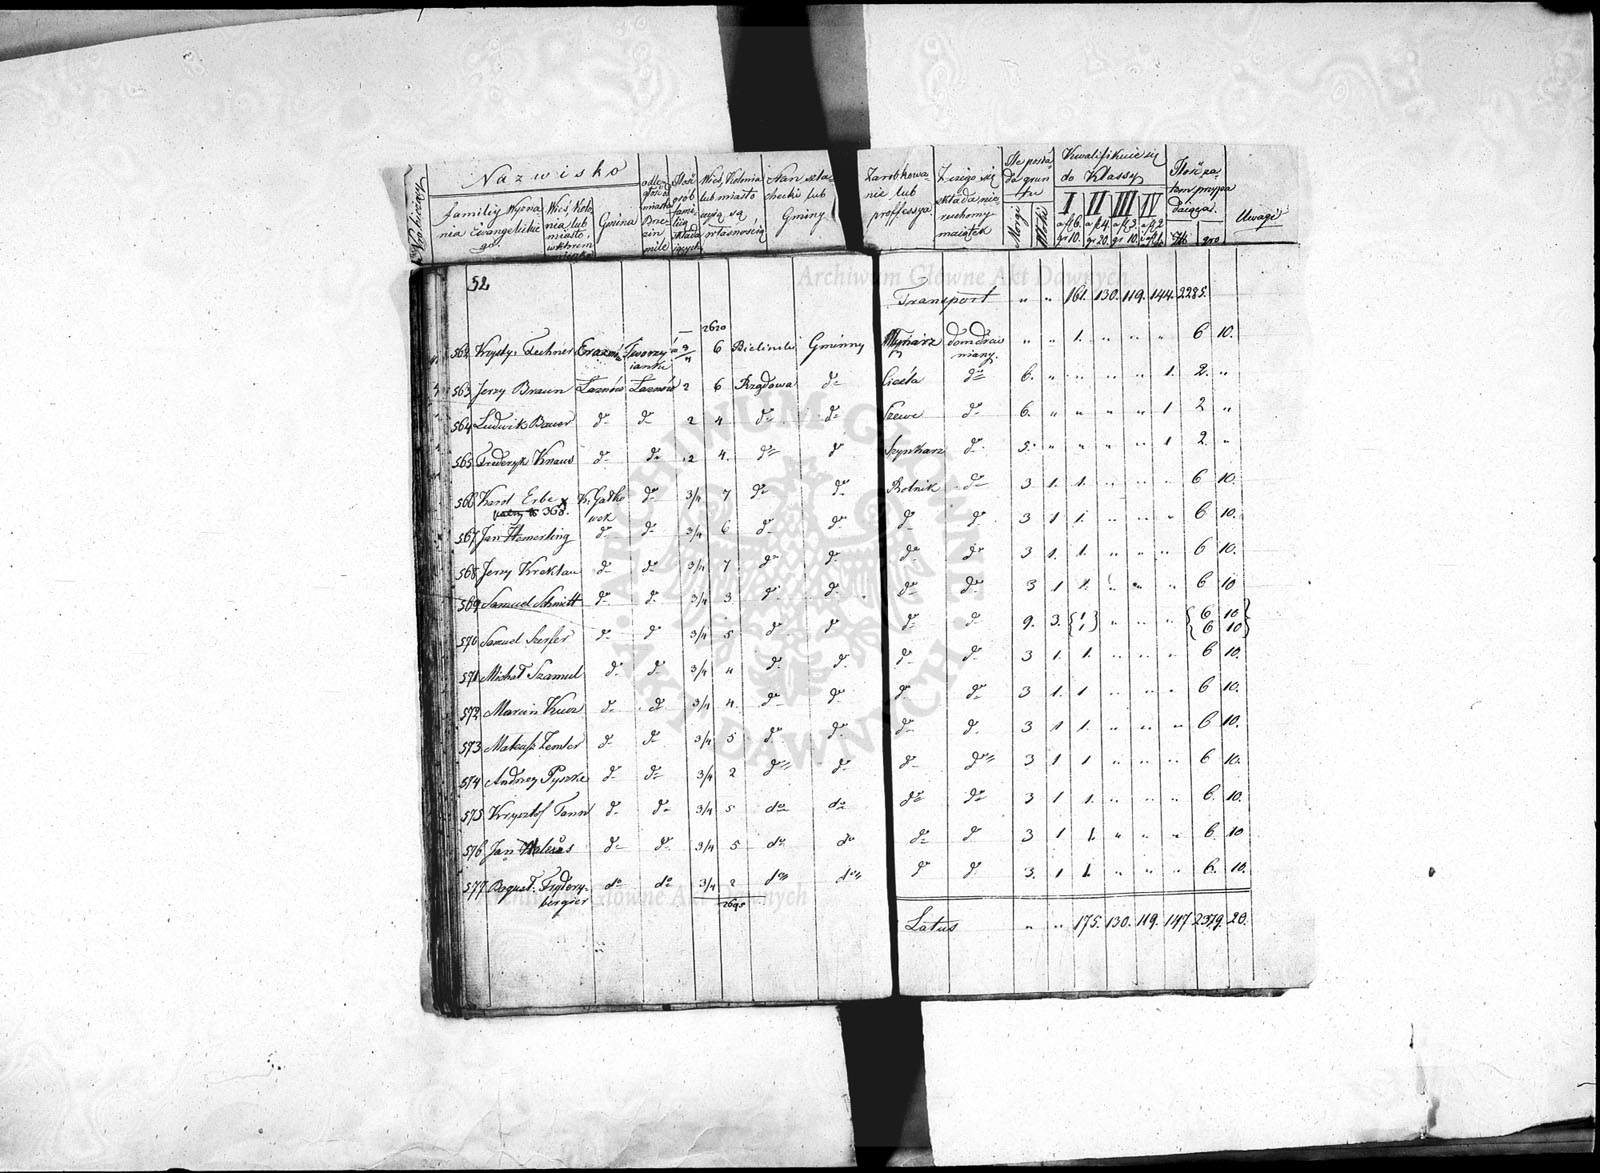 Nazwisko
familij Wyzna
nia Ewangelickie
go
Wieś, Kolo
nia lub
miasto
Gmina
Ilość
osób
Wieś, Kolonia
lub miasto
czyją są
własnością
Stan szla
checki lub
Gminny
Zarobkowa
nie lub
proffessya
Z czego się
składa nie
ruchomy
majątek
Ile posia
da grun
tu
Morgi
Kwalifikuie się
do Klassy
I II III IV
Ilość za
tem przypa
daiąca
Uwagi
52
Transport " " 161. 130. 119. 144. 2285.
2620
562 Krysty. Lechner 6 Bielinski Gminny Młynarz dom drew
niany. " " 1. " " " 6 10.
563 Jerzy Braun Laznów Laznów 2 6 Rządowa do Cieśla do 6. " " " " 1. 2. "
564 Ludwik Bauer do do 2 4 do do Szewc do 6. " " " " 1 2 "
565 Frederyk Knaus do do 2 4. do do Szynkarz do 5. " " " " 1 2. "
566 Karol Erbe x K. Gałko
wek do 3/4 7 do do Rolnik do 3 1. 1. " " " 6 10.
368.
567 Jan Hemerling do do 3/4 6 do do do do 3 1 1. " " " 6 10.
568 Jerzy Krektau do do 3/4 7 do do do do 3 1. 1. " " " 6 10.
569 Samuel Schmitt do do 3/4 3 do do do do 3 1 1. " " " 6 10
570 Samuel Szerfer do do 3/4 5 do do do do 9. 3. { 1 1 } " " " { 6 10 6 10 }
571 Michał Szamel do do 3/4 4 do do do do 3 1. 1. " " " 6 10.
572 Marcin Kucz do do 3/4 4. do do do do 3 1. 1 " " " 6 10.
573 Mateusz Zemler do do 3/4 5 do do do do 3 1 1. " " " 6 10.
574 Andrzey Pyszke do do 3/4 2 do do do do 3 1 1 " " " 6 10.
575 Krysztof Tann do do 3/4 5 do do do do 3 1 1. " " " 6. 10.
576 Jan do do 3/4 5 do do do do 3 1 1. " " " 6. 10
577 Bogusł. Frydery.
berger do do 3/4 2 do do do do 3. 1 1. " " " 6. 10.
2695
Latus " " 175. 130. 119. 147 2379. 20.
Archiwum Główne Akt Dawnych
Archiwum Główne Akt Dawnych
ARCHIWUM GŁÓWNE AKT DAWNYCH